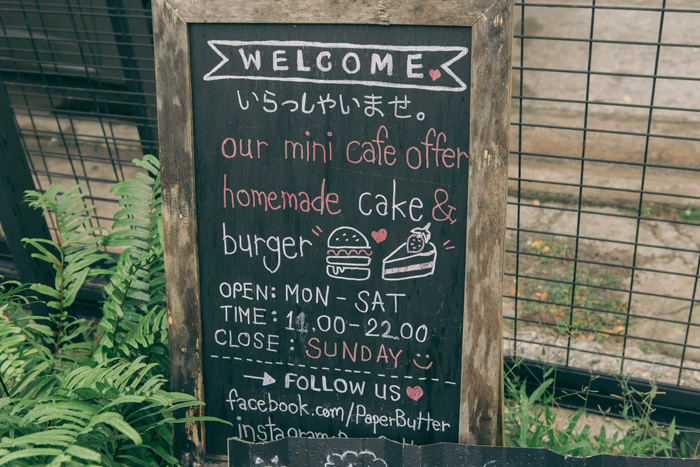 WELCOME
いらっしゃいませ。
our mini cafe offer
homemade cake &
burger
OPEN: MON - SAT
TIME: 11.00-22.00
CLOSE: SUNDAY
FOLLOW US
facebook.com/PaperButter
instagram